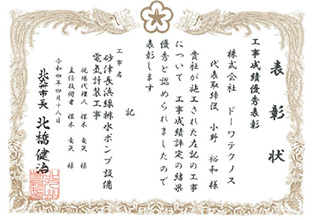 表彰状
工事成績優秀表彰
株式会社 ドーワテクノス
代表取締役 小野 裕和 様
貴社が施工された左記の工事
について 工事成績評定の結果
優秀と認められましたので
表彰します
記
工事名
砂津長浜線排水ポンプ設備
電気計装工事
現場代理人 椛木 竜久 様
主任技術者 椛木 竜久 様
令和四年四月十八日
北九州市長 北橋健治